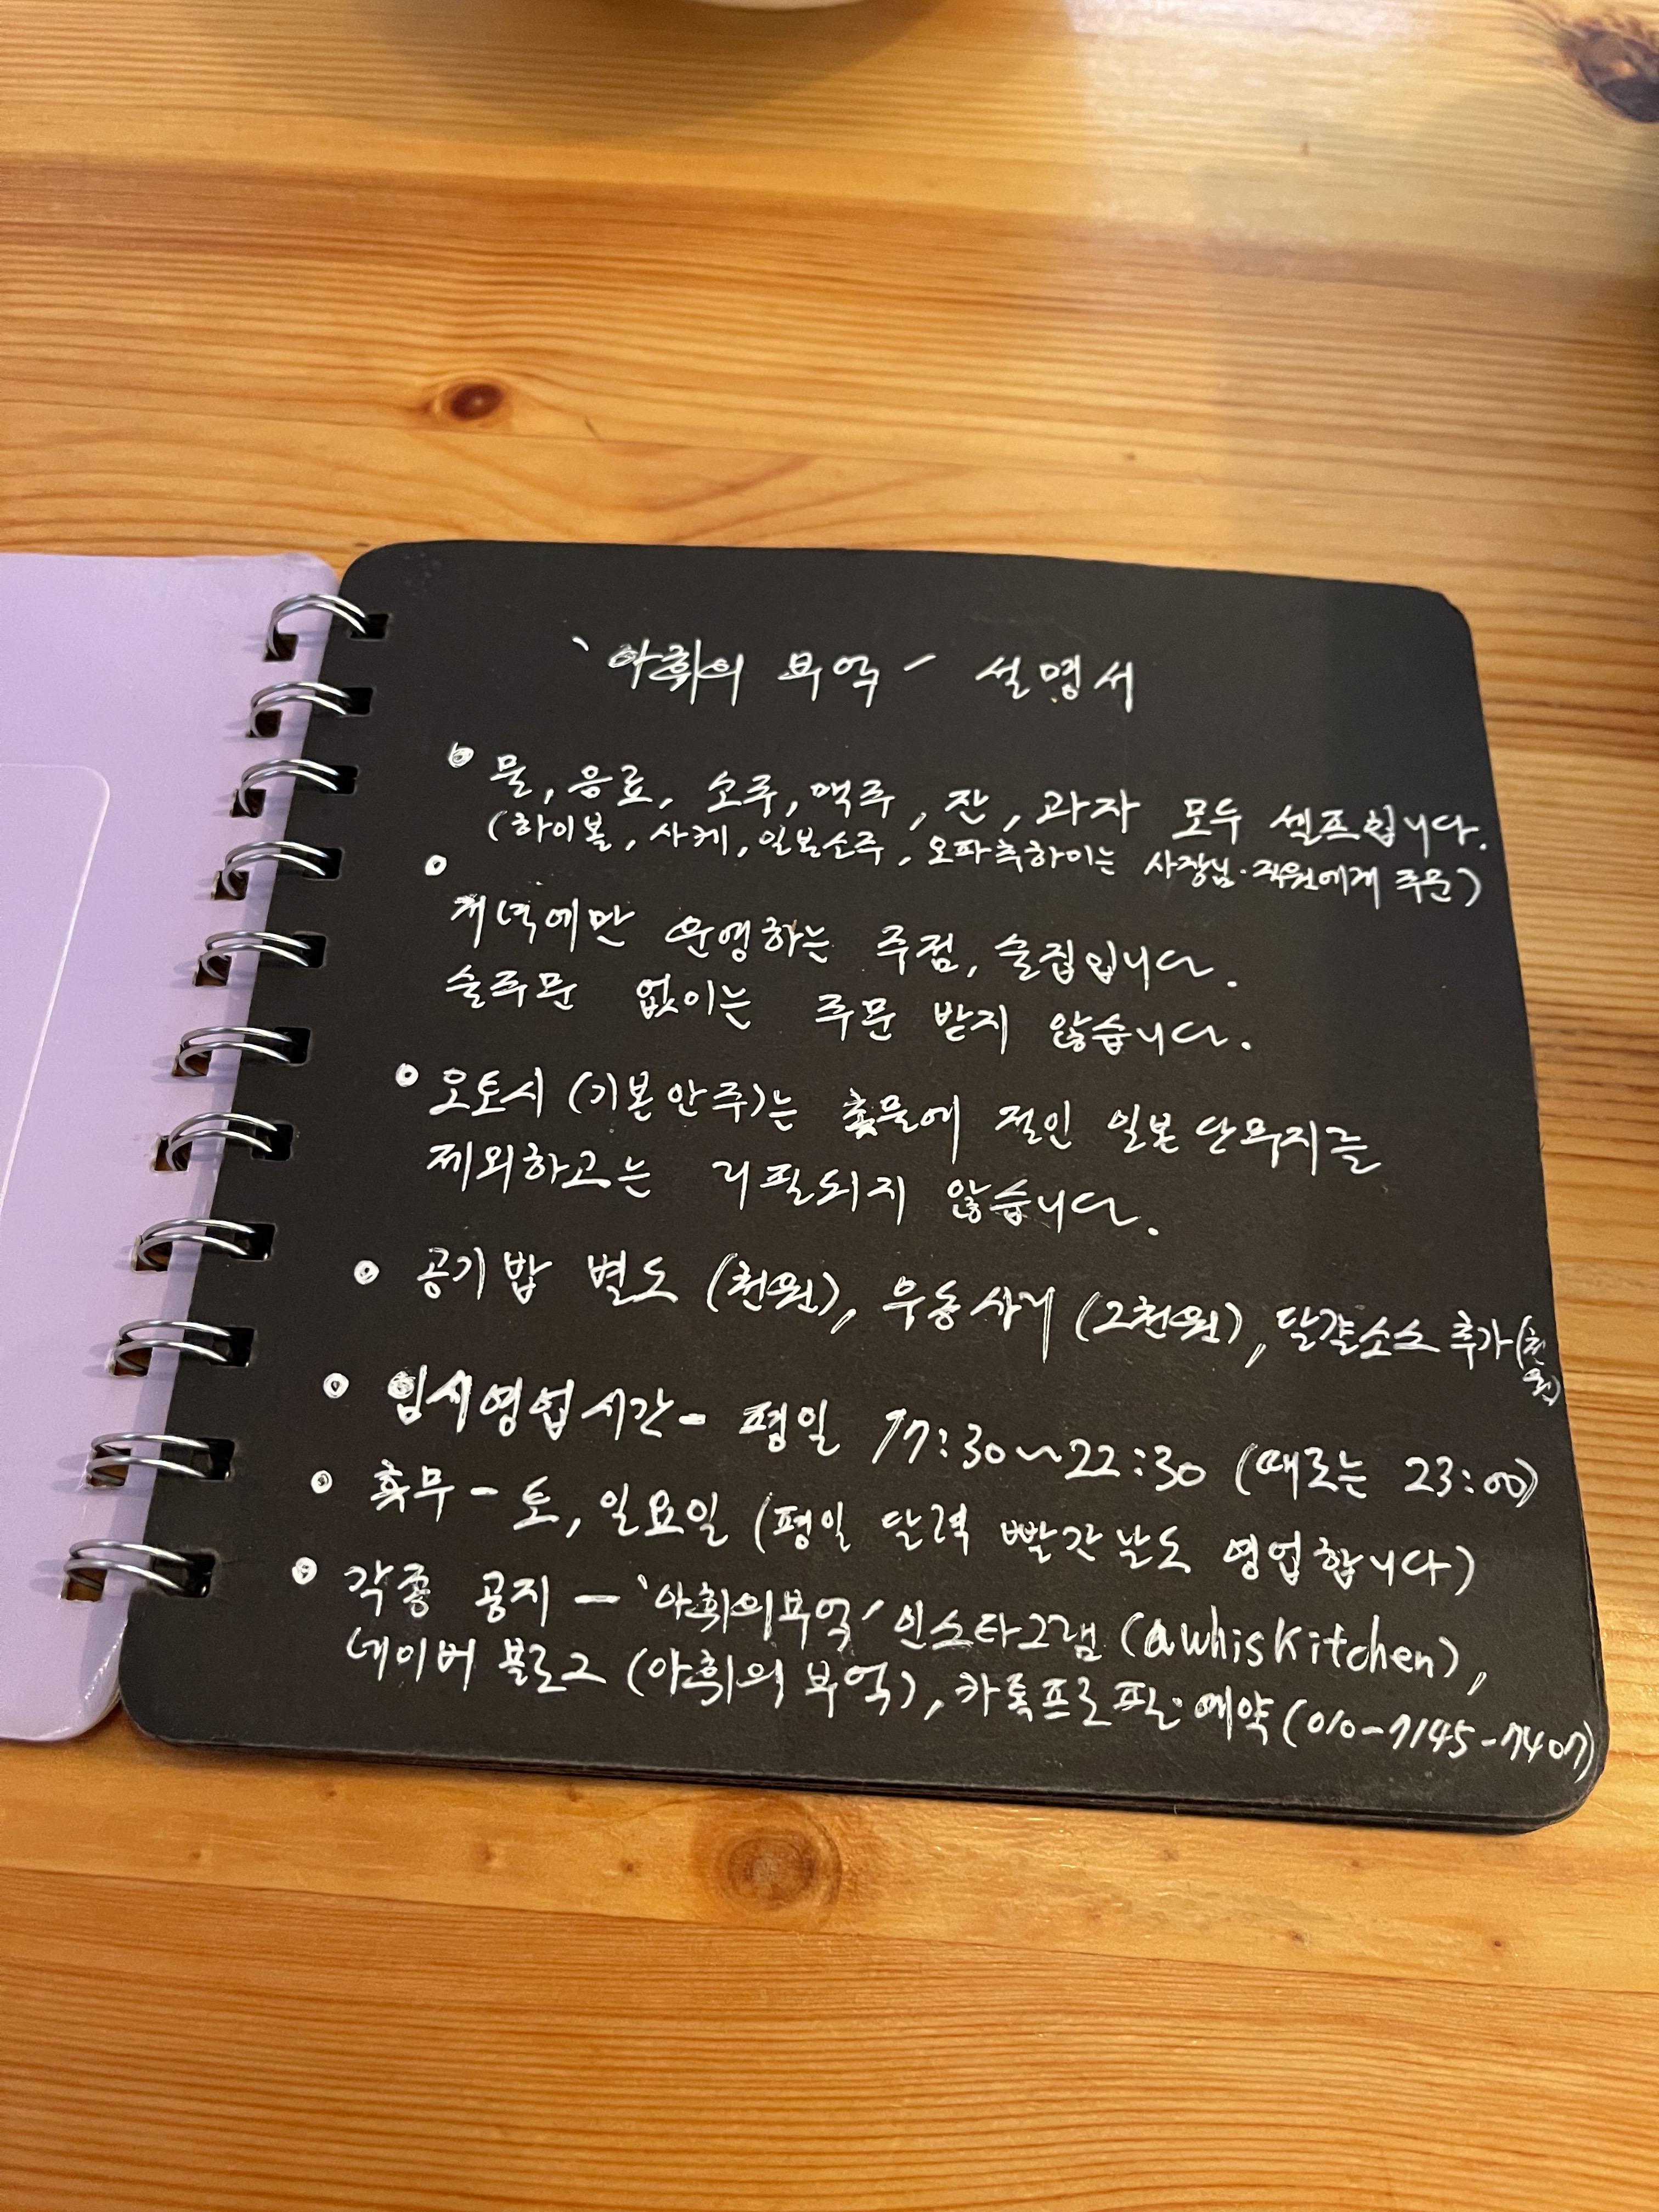 '아휘의 부엌' 설명서
물, 음료, 소주, 맥주, 잔, 과자 모두 셀프입니다.
(하이볼, 사케, 일본소주, 오파츄하이는 사장님·직원에게 주문)
저녁에만 운영하는 주점, 술집입니다.
술주문 없이는 주문 받지 않습니다.
오토시 (기본안주)는 홋물에 절인 일본단무지를
제외하고는 리필되지 않습니다.
공기밥 별도 (천원), 우동사리 (2천원), 달걀소스 추가 (천원)
임시영업시간 - 평일 17:30~22:30 (때로는 23:00)
휴무 - 토, 일요일 (평일 달력 빨간날도 영업합니다)
각종 공지 - '아휘의부엌' 인스타그램 (awhiskitchen),
네이버 블로그 (아휘의 부엌), 카톡프로필·예약 (010-7145-7407)